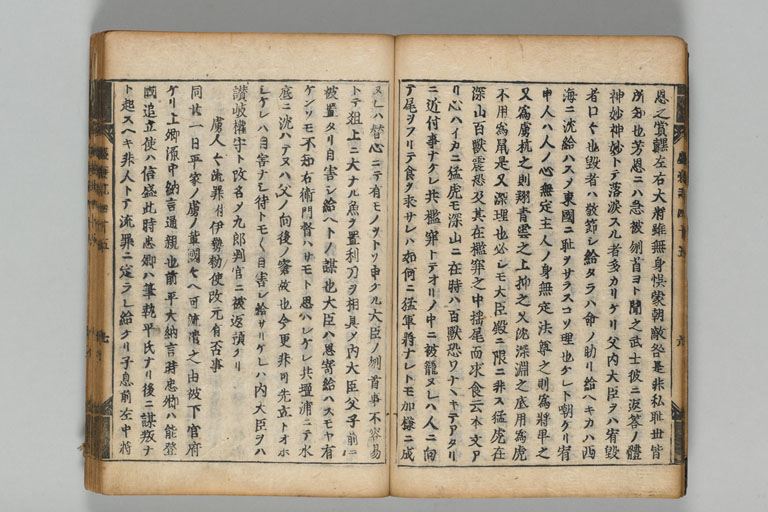 恩之賞謬左右大将雖無身悞蒙朝敵咎是非私耻世皆
所知也芳恩ニハ急被刎首ヨト聞之武士彼ニ返答ノ體
神妙神妙トテ落涙スル者多カリケリ父内大臣ヲハ宥毀
者口々也毀者ハ敬節シ給タラハ命ノ助リ給ヘキカハ西
海ニ沈給ハスソ東國ニ耻ヲサラスコソ理也ケレト嘲ケリ宥
申人ハ人ノ心無定主人ノ身無定法尊之則為将卑之
又為虜抗之則翔青雲之上抑之又沈深淵之底用為虎
不用為鼠是又深理也必シモ大臣殿ニ限ニ非ス猛虎在
深山百獣震恐及其在檻穽之中揺尾而求食云本文ア
リ心ハイカニ猛虎モ深山ニ在時ハ百獣恐ワナヽキテアタリ
ニ近付事ナクレ共檻穽トテオリノ中ニ被籠ヌレハ人ニ向
テ尾ヲフリテ食ヲ求サレハ如何ニ猛軍将ナレトモ加様ニ成
ヌレハ替心ニテ有モノヲトソ申ケル大臣ノ刎首事不容易
トテ俎上ニ大ナル魚ヲ置利刀ヲ相具〆内大臣父子前ニ
被置タリ自害シ給ヘトノ謀也大臣ハ思寄給ハスモヤ有
ケンソモ不知右衛門督ハサモト思ハレケレ共壇浦ニテ水
底ニ沈ハテヌハ父ノ向後ノ窮故也今更非可先立トオホ
シケレハ自害ナシ待トモ〱自害シ給サリケレハ内大臣ヲハ
讃岐権守ト改名〆九郎判官ニ被返預ケリ
虜人々流罪付伊勢勅使改元有否事
同廿一日平家ノ虜ノ輩國々ヘ可被流遣之由被下官府
ケリ上卿源中納言通親也前平大納言時忠卿ハ能登
國追立使ハ信盛此時忠卿ハ筆執平氏ナリ後ニ謀叛ナ
ト起スヘキ非人トテ流罪ニ定ラレ給ケリ子息前左中将